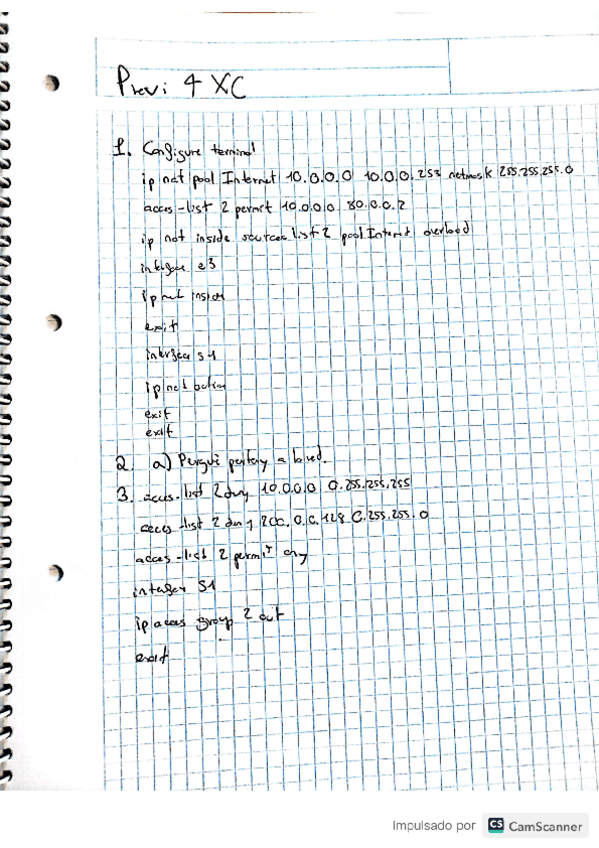 Previ 4 XC
1. Configure terminal
ip nat pool Internet 10.0.0.0 10.0.0.253 netmask 255.255.255.0
acces-list 2 permit 10.0.0.0 80.0.0.2
ip nat inside source list 2 pool Internet overload
interface e3
ip nat inside
exit
interface s1
ip nat
exit
exit
2. a) Perquè a la xed.
3. acces-list 2 deny 10.0.0.0 0.255.255.255
acces-list 2 deny 200.0.0.128 0.255.255.0
acces-list 2 permit any
interface S1
ip acces group 2 out
exit
Impulsado por CS CamScanner